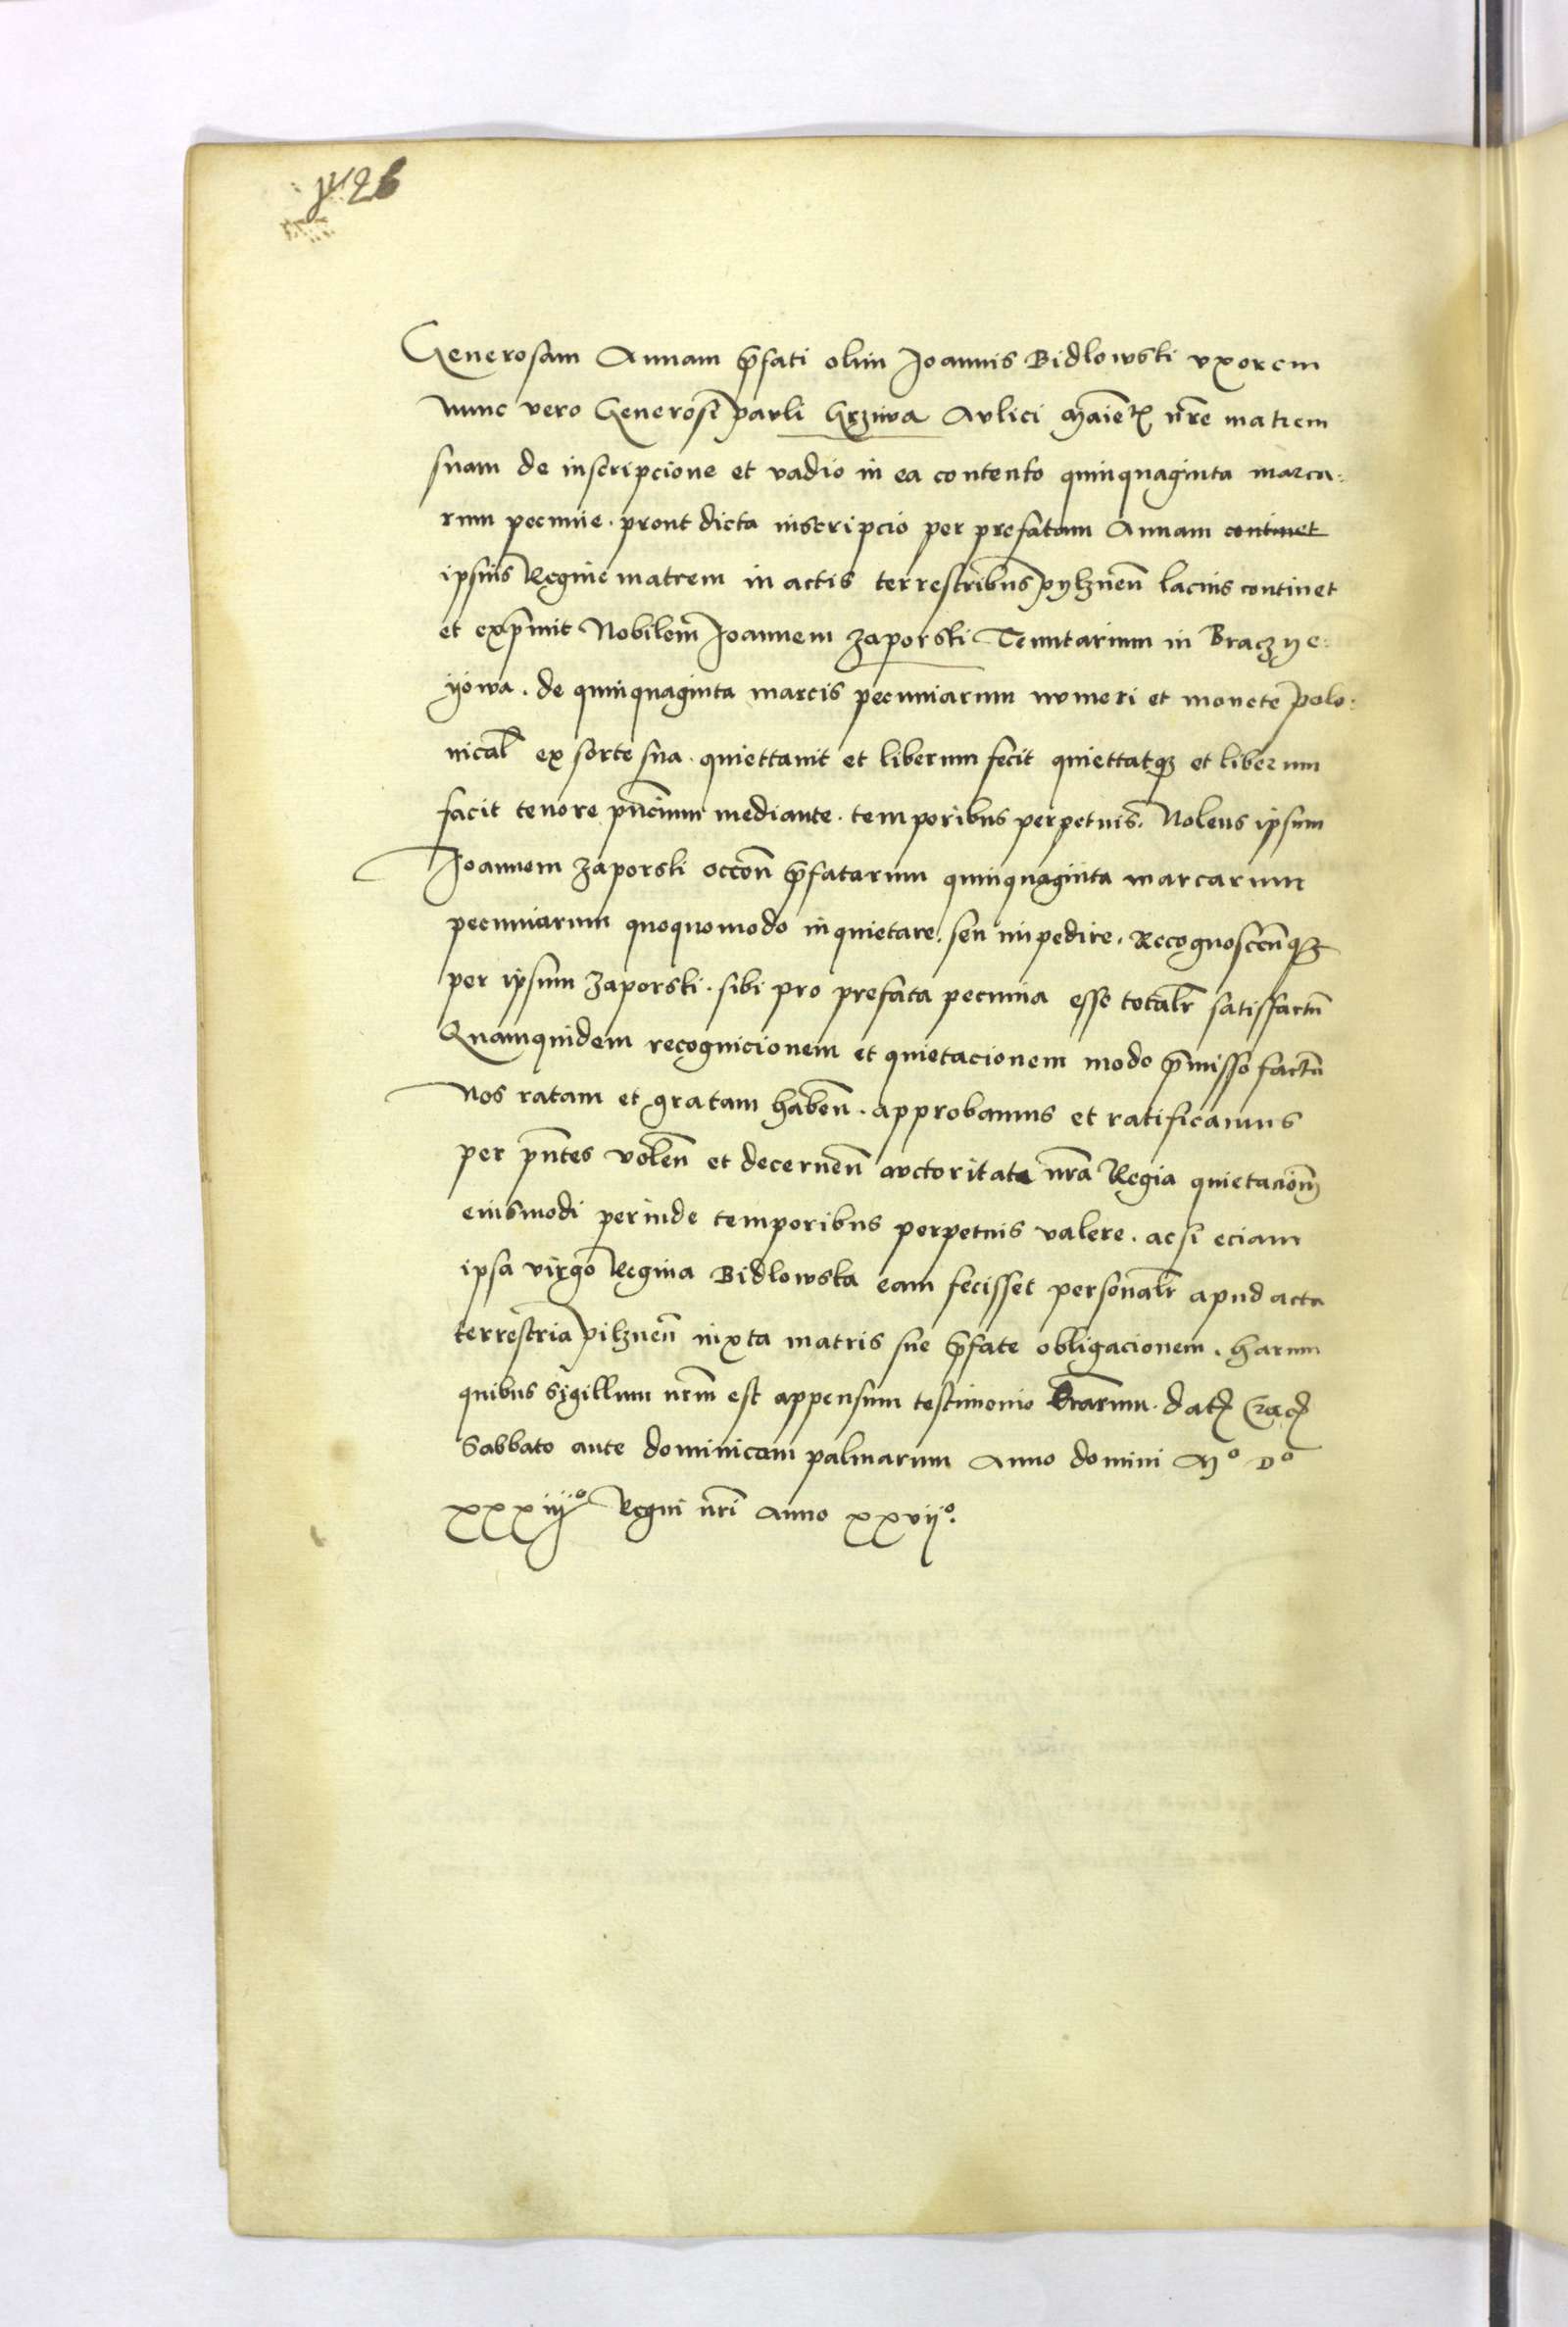 Generosam Annam p̄fati olim Joannis Bidlowski vxorem
nunc vero Generosi pauli Grzywa Aulici Maiet̄ nr̄e matrem
suam de inscripcione et vadio in ea contento quinquaginta marca:
rum pecunie. prout dicta inscripcio per prefatam Annam continet
ipsius Regine matrem in actis terrestribus pylznen̄ lacius continet
et exp̄mit Nobilem Joannem Zaporski Tenutarium in Braczye:
yowa. de quinquaginta marcis pecuniarum numeri et monete polo:
nical̄ ex sorte sua. quiettauit et liberum fecit quiettatq3 et liberum
facit tenore pn̄cium mediante. temporibus perpetuis. Nolens ipsum
Joannem Zaporski occōn p̄fatarum quinquaginta marcarum
pecuniarum quoquomodo inquietare. seu impedire. Recognoscen̄q3
per ipsum Zaporski. sibi pro prefata pecunia esse totalr̄ satisfactū
Quamquidem recognicionem et quietacionem modo p̄misso factā
Nos ratam et gratam haben̄. approbamus et ratificamus
per pn̄tes volen̄ et decernen̄ auctoritate nr̄a Regia quietacionē
eiusmodi perinde temporibus perpetuis valere. ac si eciam
ipsa virgo Regina Bidlowska eam fecisset personalr̄ apud acta
terrestria pilznen̄ iuxta matris sue p̄fate obligacionem. harum
quibus sigillum nr̄m est appensum testimonio lr̄arum. dat̄ Crac̄
Sabbato ante dominicam palmarum Anno domini Mº Dº
xxxiijº Regni nr̄i Anno xxvijº.